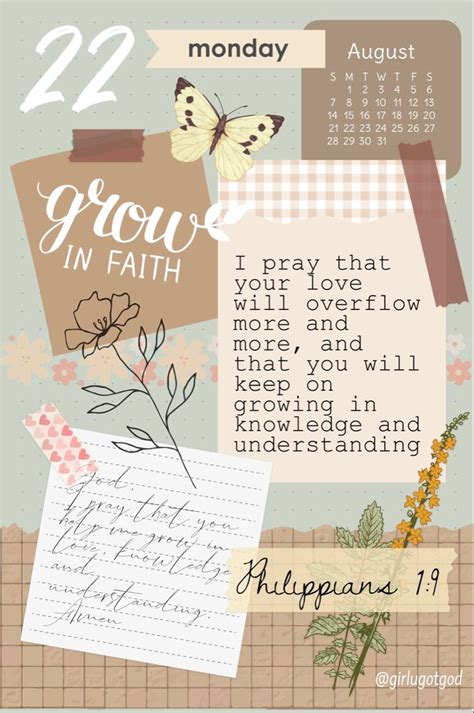 22
monday
August
S M T W T F S
1 2 3 4 5 6
7 8 9 10 11 12 13
14 15 16 17 18 19 20
21 22 23 24 25 26 27
28 29 30 31
grow
IN FAITH
I pray that
your love
will overflow
more and
more, and
that you will
keep on
growing in
knowledge and
understanding
God,
I pray that you
help me grow in
love, knowledge
and
understanding.
Amen
Philippians 1:9
@girlugotgod